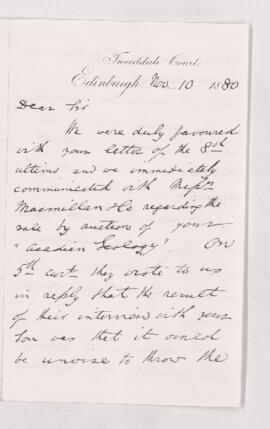 Tweeddale Court,
Edinburgh Nov. 10 1880
Dear Sir
We were duly favoured
with your letter of the 8th
ultimo, and we immediately
communicated with Messrs
Macmillan & Co regarding the
sale by auction of your
"Acadian Geology". On
5th curt. they wrote to us
in reply that the result
of their interview with your
son was that it would
be unwise to throw the